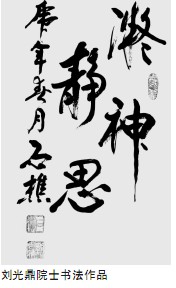 凝神
靜思
虎年春月石樵
刘光鼎院士书法作品